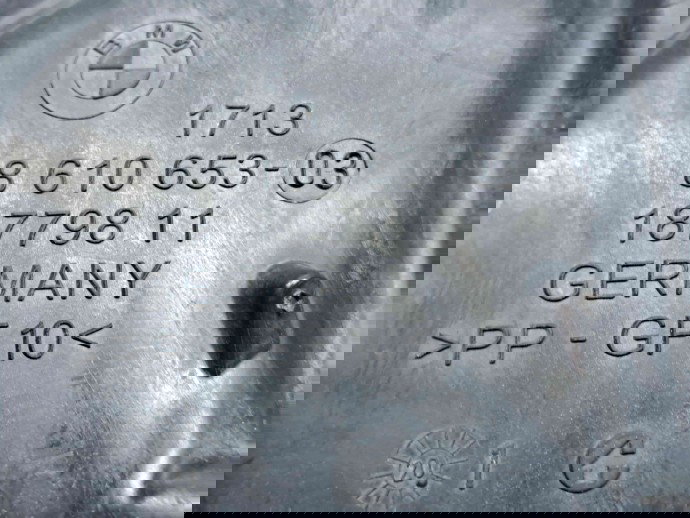 BMW
1713
8 610 653-03
187798 11
GERMANY
>PP-GF 10<
00